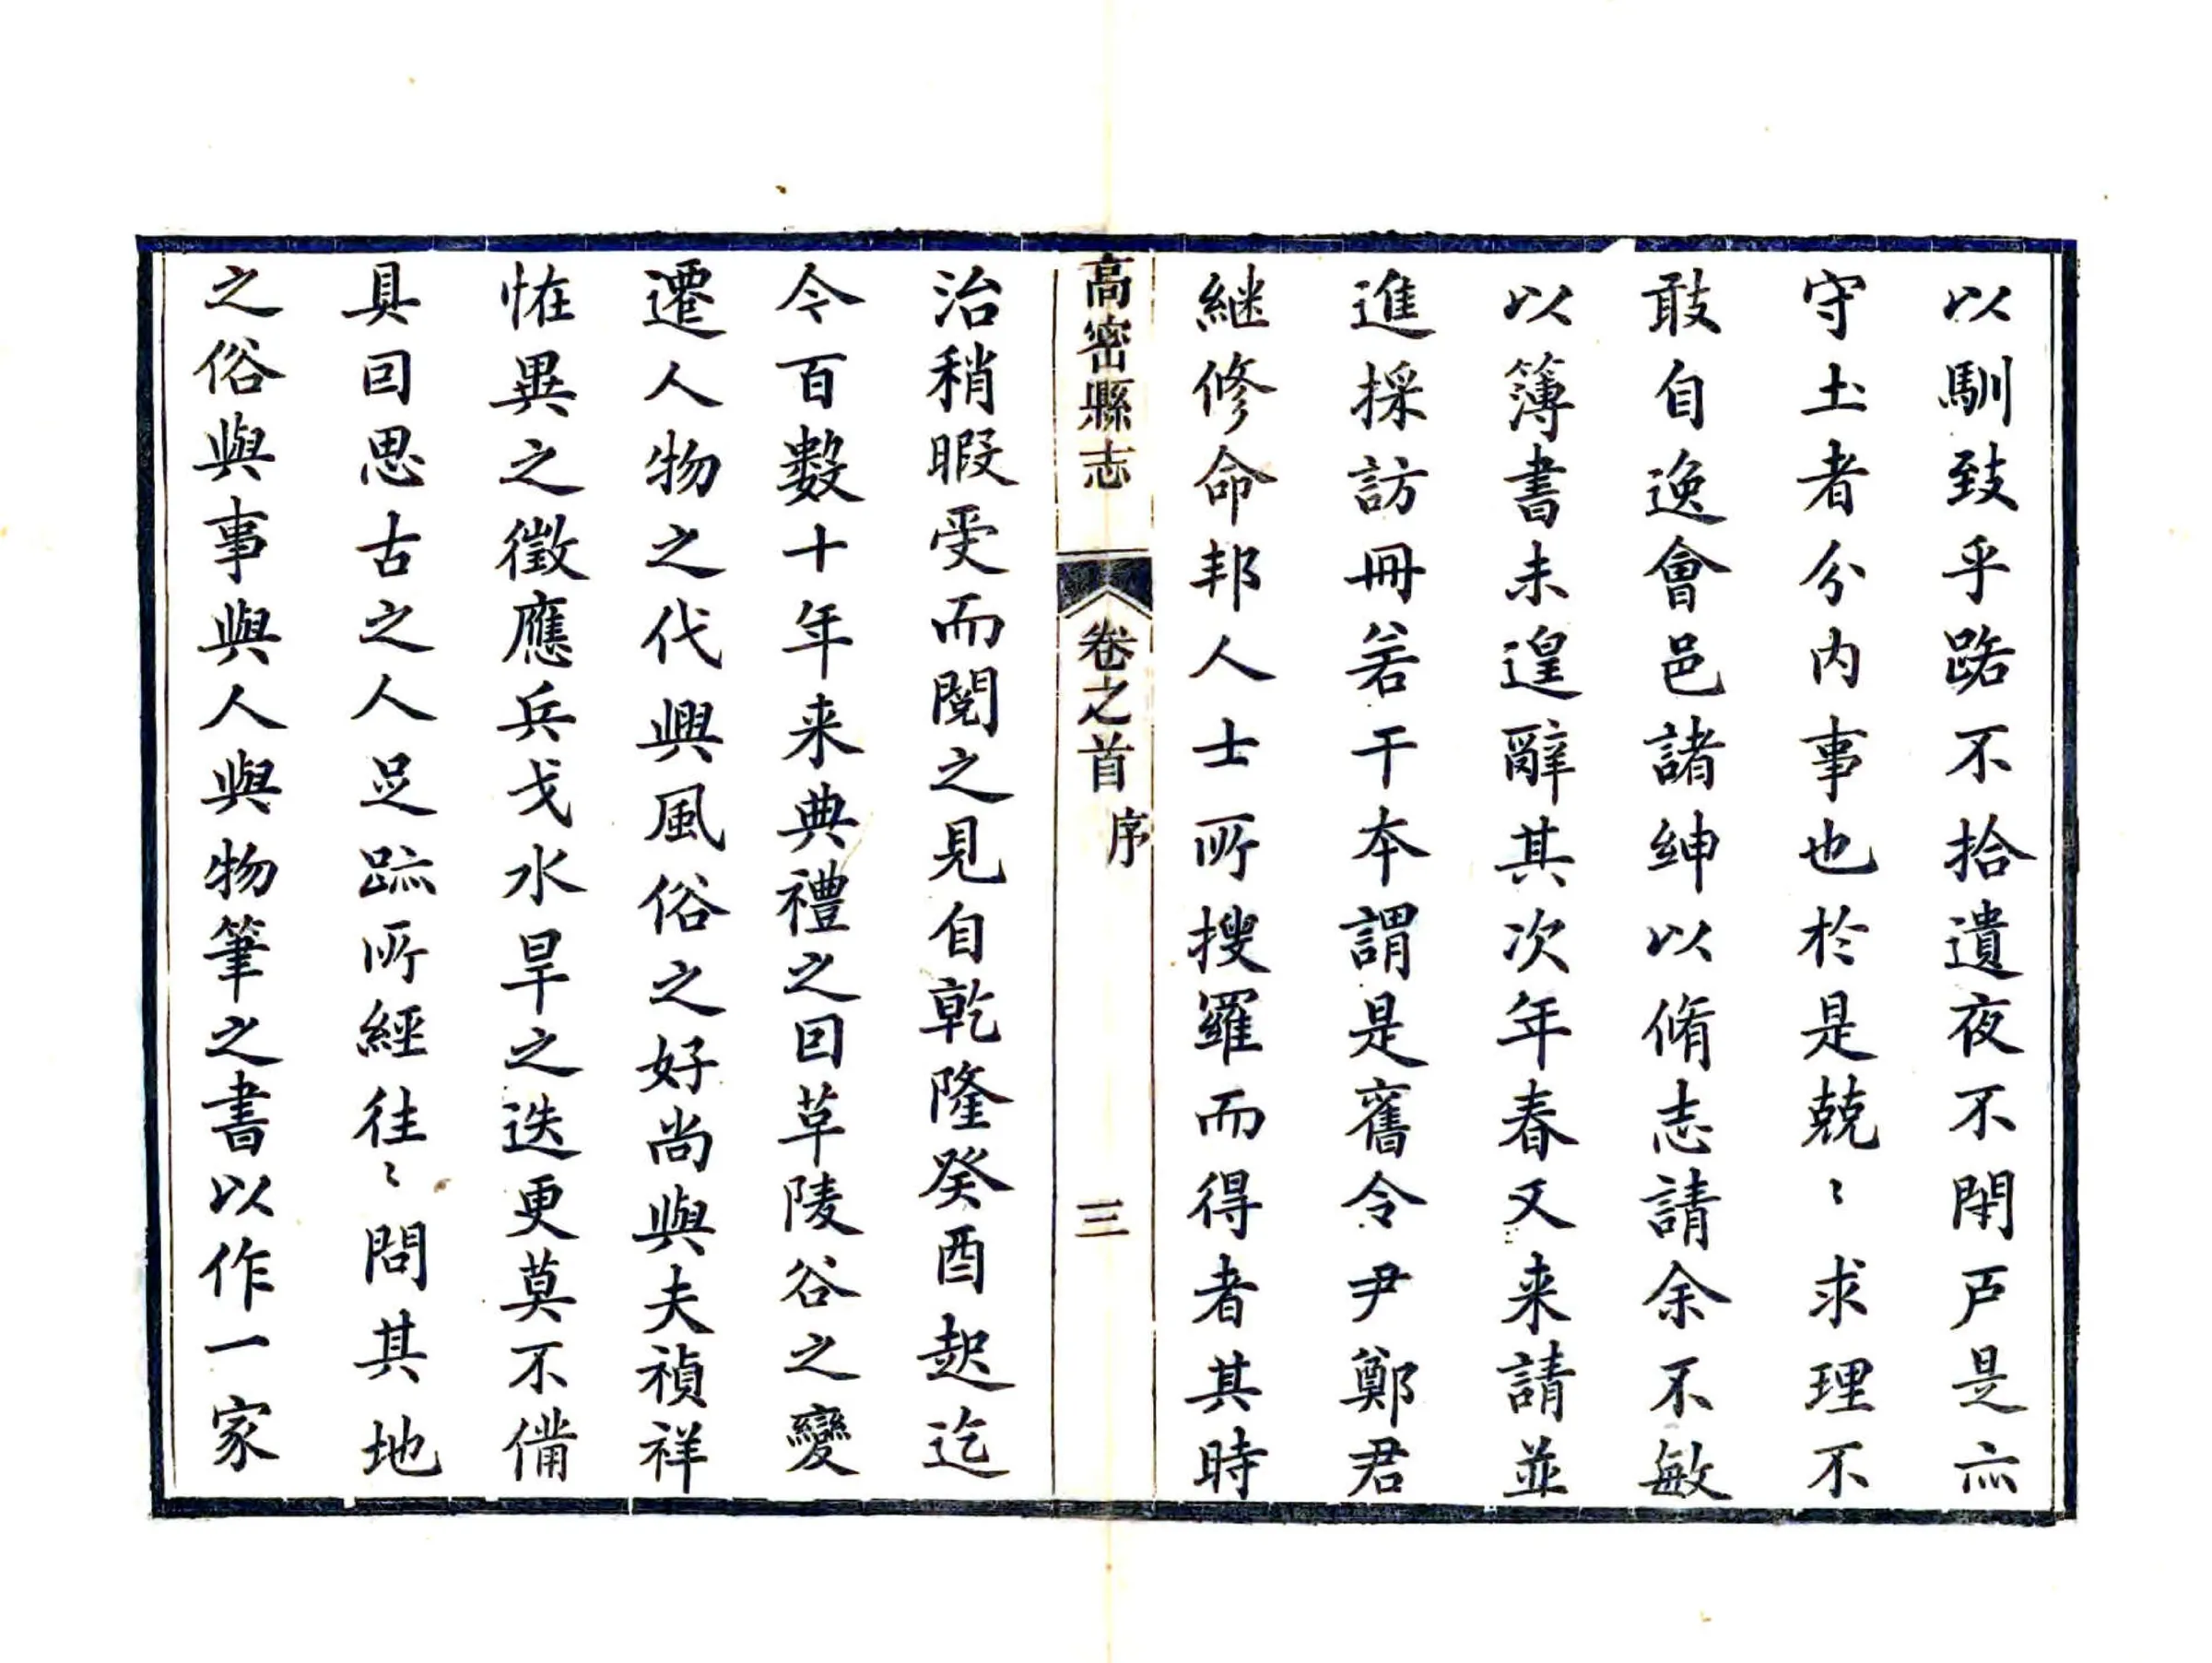 以馴致乎路不拾遺夜不閉戸是亦
守土者分内事也於是兢〻求理不
敢自逸會邑諸紳以脩志請余不敏
以簿書未遑辭其次年春又来請並
進採訪冊若干本謂是舊令尹鄭君
継修命邦人士所搜羅而得者其時
高密縣志 卷之首 序 三
治稍暇受而閱之見自乾隆癸酉起迄
今百數十年来典禮之因革陵谷之變
遷人物之代興風俗之好尚與夫禎祥
恠異之徵應兵戈水旱之迭更莫不備
具因思古之人足跡所經往〻問其地
之俗與事與人與物筆之書以作一家